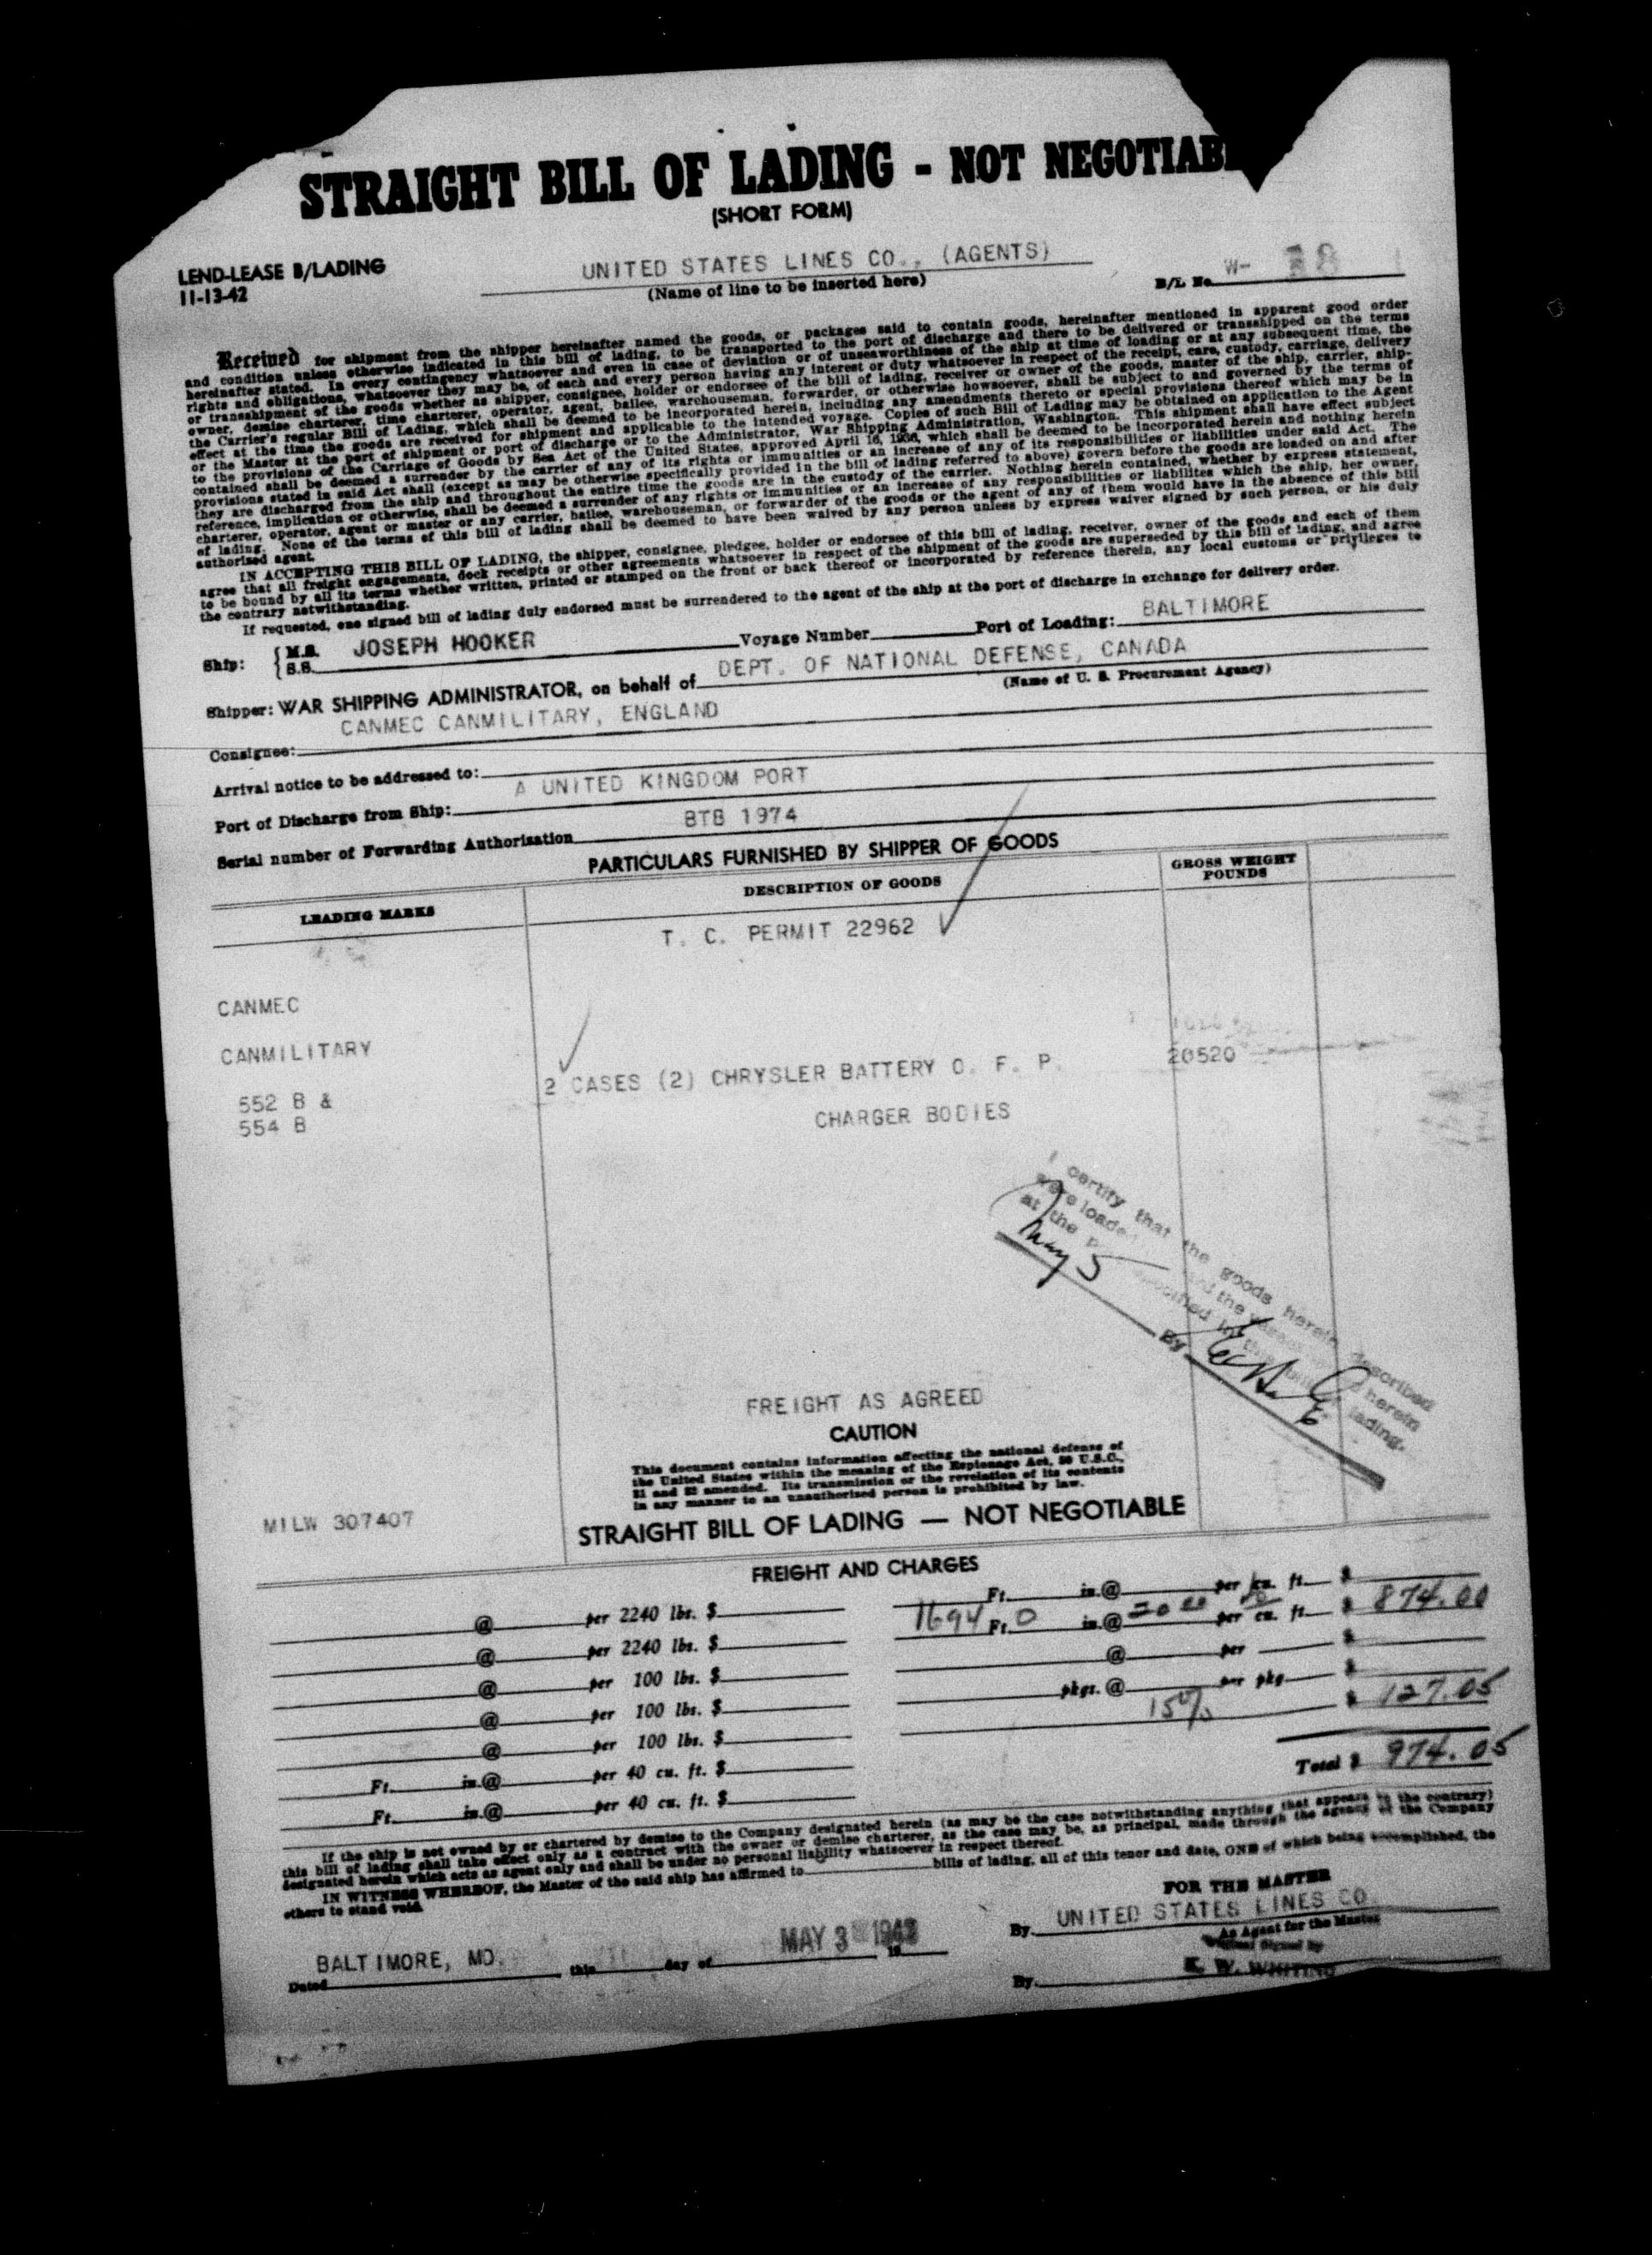 STRAIGHT BILL OF LADING - NOT NEGOTIAB
(SHORT FORM)
LEND-LEASE B/LADING
11-13-42
UNITED STATES LINES CO., (AGENTS)
(Name of line to be inserted here)
B/L No. W- 38
Received for shipment from the shipper hereinafter named the goods, or packages said to contain goods, hereinafter mentioned in apparent good order
and condition unless otherwise indicated in this bill of lading, to be transported to the port of discharge and there to be delivered or transshipped on the terms
hereinafter stated. In every contingency whatsoever and even in case of deviation or of unseaworthiness of the ship at time of loading or at any subsequent time, the
rights and obligations, whatsoever they may be, of each and every person having any interest or duty whatsoever in respect of the receipt, care, custody, carriage, delivery
or transshipment of the goods whether as shipper, consignee, holder or endorsee of the bill of lading, receiver or owner of the goods, master of the ship, carrier, ship-
owner, demise charterer, time charterer, operator, agent, bailee, warehouseman, forwarder, or otherwise howsoever, shall be subject to and governed by the terms of
the Carrier's regular Bill of Lading, which shall be deemed to be incorporated herein, including any amendments thereto or special provisions thereof which may be in
effect at the time the goods are received for shipment and applicable to the intended voyage. Copies of such Bill of Lading may be obtained on application to the Agent
or the Master at the port of shipment or port of discharge or to the Administrator, War Shipping Administration, Washington. This shipment shall have effect subject
to the provisions of the Carriage of Goods by Sea Act of the United States, approved April 16, 1936, which shall be deemed to be incorporated herein and nothing herein
contained shall be deemed a surrender by the carrier of any of its rights or immunities or an increase of any of its responsibilities or liabilities under said Act. The
provisions stated in said Act shall (except as may be otherwise specifically provided in the bill of lading referred to above) govern before the goods are loaded on and after
they are discharged from the ship and throughout the entire time the goods are in the custody of the carrier. Nothing herein contained, whether by express statement,
reference, implication or otherwise, shall be deemed a surrender of any rights or immunities or an increase of any responsibilities or liabilites which the ship, her owner,
charterer, operator, agent or master or any carrier, bailee, warehouseman, or forwarder of the goods or the agent of any of them would have in the absence of this bill
of lading. None of the terms of this bill of lading shall be deemed to have been waived by any person unless by express waiver signed by such person, or his duly
authorised agent.
IN ACCEPTING THIS BILL OF LADING, the shipper, consignee, pledgee, holder or endorsee of this bill of lading, receiver, owner of the goods and each of them
agree that all freight engagements, dock receipts or other agreements whatsoever in respect of the shipment of the goods are superseded by this bill of lading, and agree
to be bound by all its terms whether written, printed or stamped on the front or back thereof or incorporated by reference therein, any local customs or privileges to
the contrary notwithstanding.
If requested, one signed bill of lading duly endorsed must be surrendered to the agent of the ship at the port of discharge in exchange for delivery order.
Ship: { M.S. S.S. JOSEPH HOOKER Voyage Number Port of Loading: BALTIMORE
Shipper: WAR SHIPPING ADMINISTRATOR, on behalf of DEPT. OF NATIONAL DEFENSE, CANADA
(Name of U. S. Procurement Agency)
Consignee: CANMEC CANMILITARY, ENGLAND
Arrival notice to be addressed to:
Port of Discharge from Ship: A UNITED KINGDOM PORT
Serial number of Forwarding Authorisation BTB 1974
PARTICULARS FURNISHED BY SHIPPER OF GOODS
LEADING MARKS
DESCRIPTION OF GOODS
GROSS WEIGHT
POUNDS
T. C. PERMIT 22962
CANMEC
CANMILITARY
552 B &
554 B
2 CASES (2) CHRYSLER BATTERY O. F. P.
20520
CHARGER BODIES
I certify that the goods herein described
were loaded the herein
at the specified in this bill of lading.
May 5
By
FREIGHT AS AGREED
CAUTION
This document contains information affecting the national defense of
the United States within the meaning of the Espionage Act, 50 U.S.C.,
31 and 32 amended. Its transmission or the revelation of its contents
in any manner to an unauthorised person is prohibited by law.
MILW 307407
STRAIGHT BILL OF LADING — NOT NEGOTIABLE
FREIGHT AND CHARGES
@ per 2240 lbs. $
@ per 2240 lbs. $
@ per 100 lbs. $
@ per 100 lbs. $
@ per 100 lbs. $
Ft. in.@ per 40 cu. ft. $
Ft. in.@ per 40 cu. ft. $
Ft. in.@ per cu. ft. $
1694 Ft. 0 in.@ 20 00 per cu. ft. $ 874.00
@ per $
pkgs. @ per pkg. $
15% $ 127.05
Total $ 974.05
If the ship is not owned by or chartered by demise to the Company designated herein (as may be the case notwithstanding anything that appears to the contrary)
this bill of lading shall take effect only as a contract with the owner or demise charterer, as the case may be, as principal, made through the agency of the Company
designated herein which acts as agent only and shall be under no personal liability whatsoever in respect thereof.
IN WITNESS WHEREOF, the Master of the said ship has affirmed to bills of lading, all of this tenor and date, ONE of which being accomplished, the
others to stand void.
FOR THE MASTER
By UNITED STATES LINES CO.
As Agent for the Master
Original Signed by
By K. W. WHITING
Dated BALTIMORE, MD. this day of MAY 3 1943 19